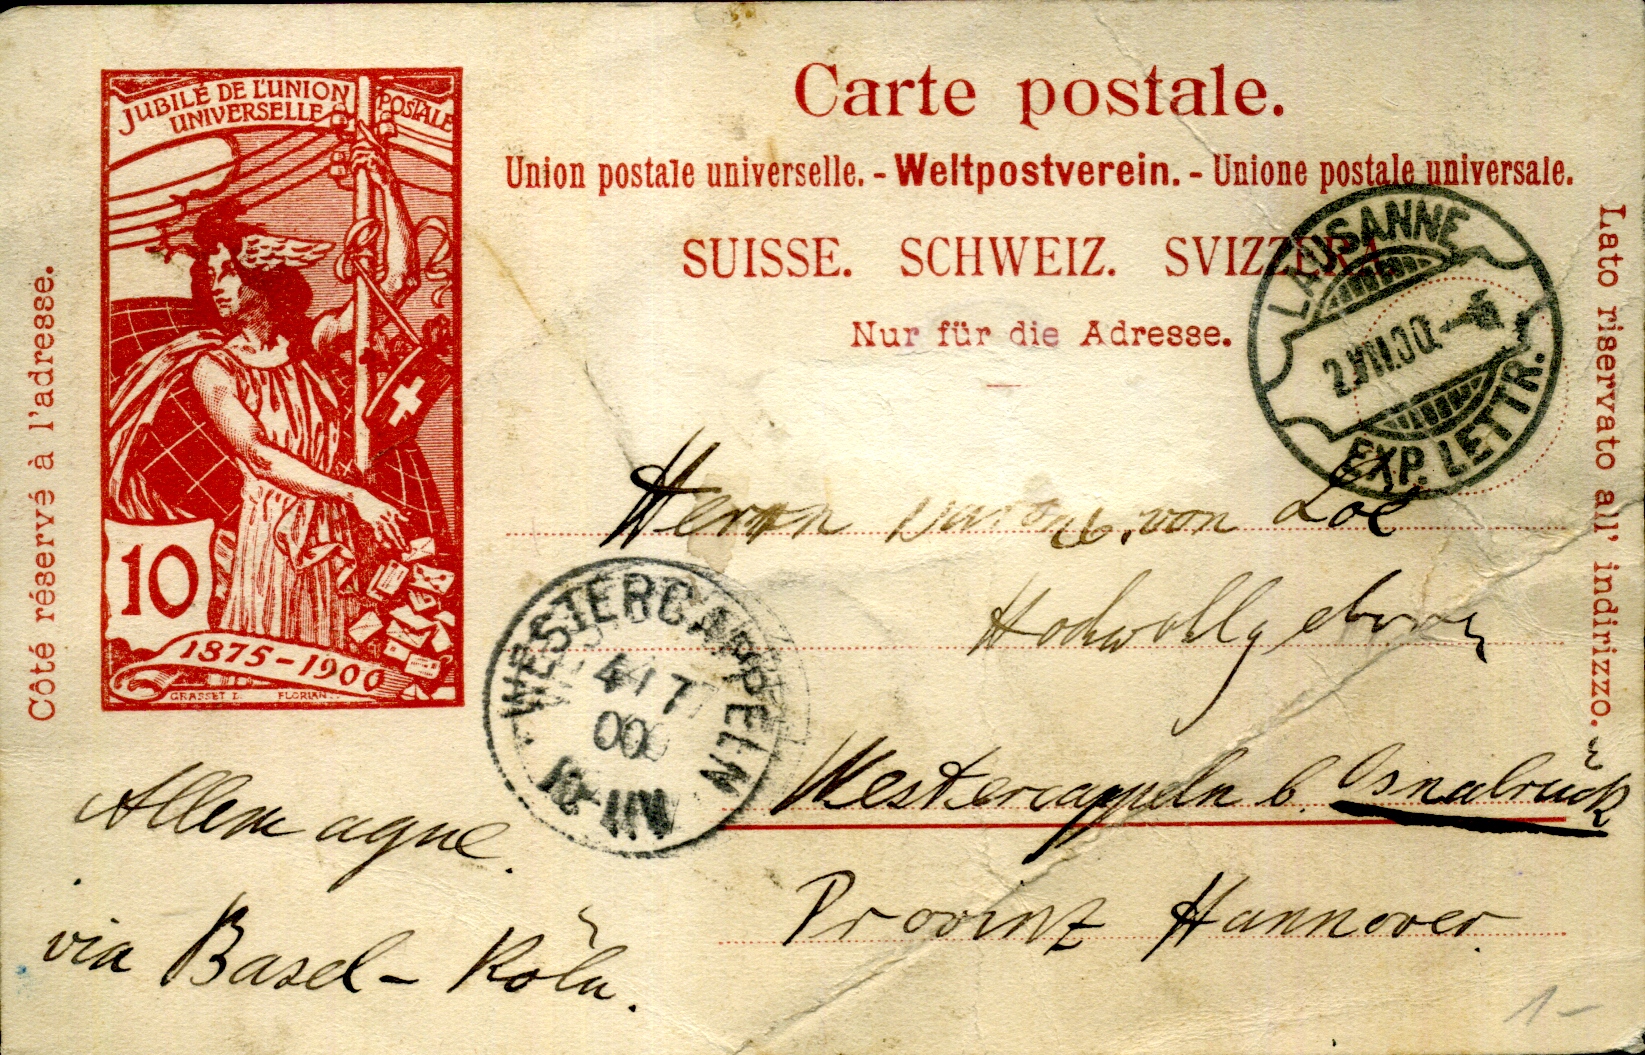 JUBILÉ DE L'UNION POSTALE
UNIVERSELLE
10
1875-1900
GRASSET L. FLORIAN
Carte postale.
Union postale universelle. - Weltpostverein. - Unione postale universale.
SUISSE. SCHWEIZ. SVIZZERA.
Nur für die Adresse.
Côté réservé à l'adresse.
Lato riservato all' indirizzo.
LAUSANNE
2.VII.00.
EXP. LETTR.
Herrn von Loë
Hochwollgeboren
WESTERCAPPELN
4 7
00
Westercappeln b. Osnabrück
Provinz Hannover
Allemagne.
via Basel - Köln.
1-